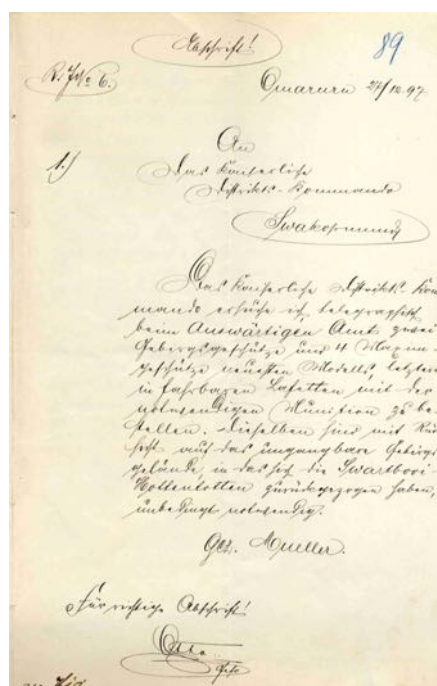 Abschrift!
89
R. J. No 6.
Omaruru 24/12.97
1.)
An
das Kaiserliche
Distrikts-Kommando
Swakopmund
Das Kaiserliche Distrikts Kom
mando ersuche ich telegraphisch
beim Auswärtigen Amt zwei
Gebirgsgeschütze und 4 Maxim-
geschütze neuesten Modells, letztere
in fahrbaren Lafetten mit der
notwendigen Munition zu be-
stellen. Dieselben sind mit Rück
sicht auf das ungangbare Gebirgs
gelände, in das sich die Swartbooi-
Hottentotten zurückgezogen haben,
unbedingt notwendig.
Gez. Mueller.
Für richtige Abschrift!
Otto